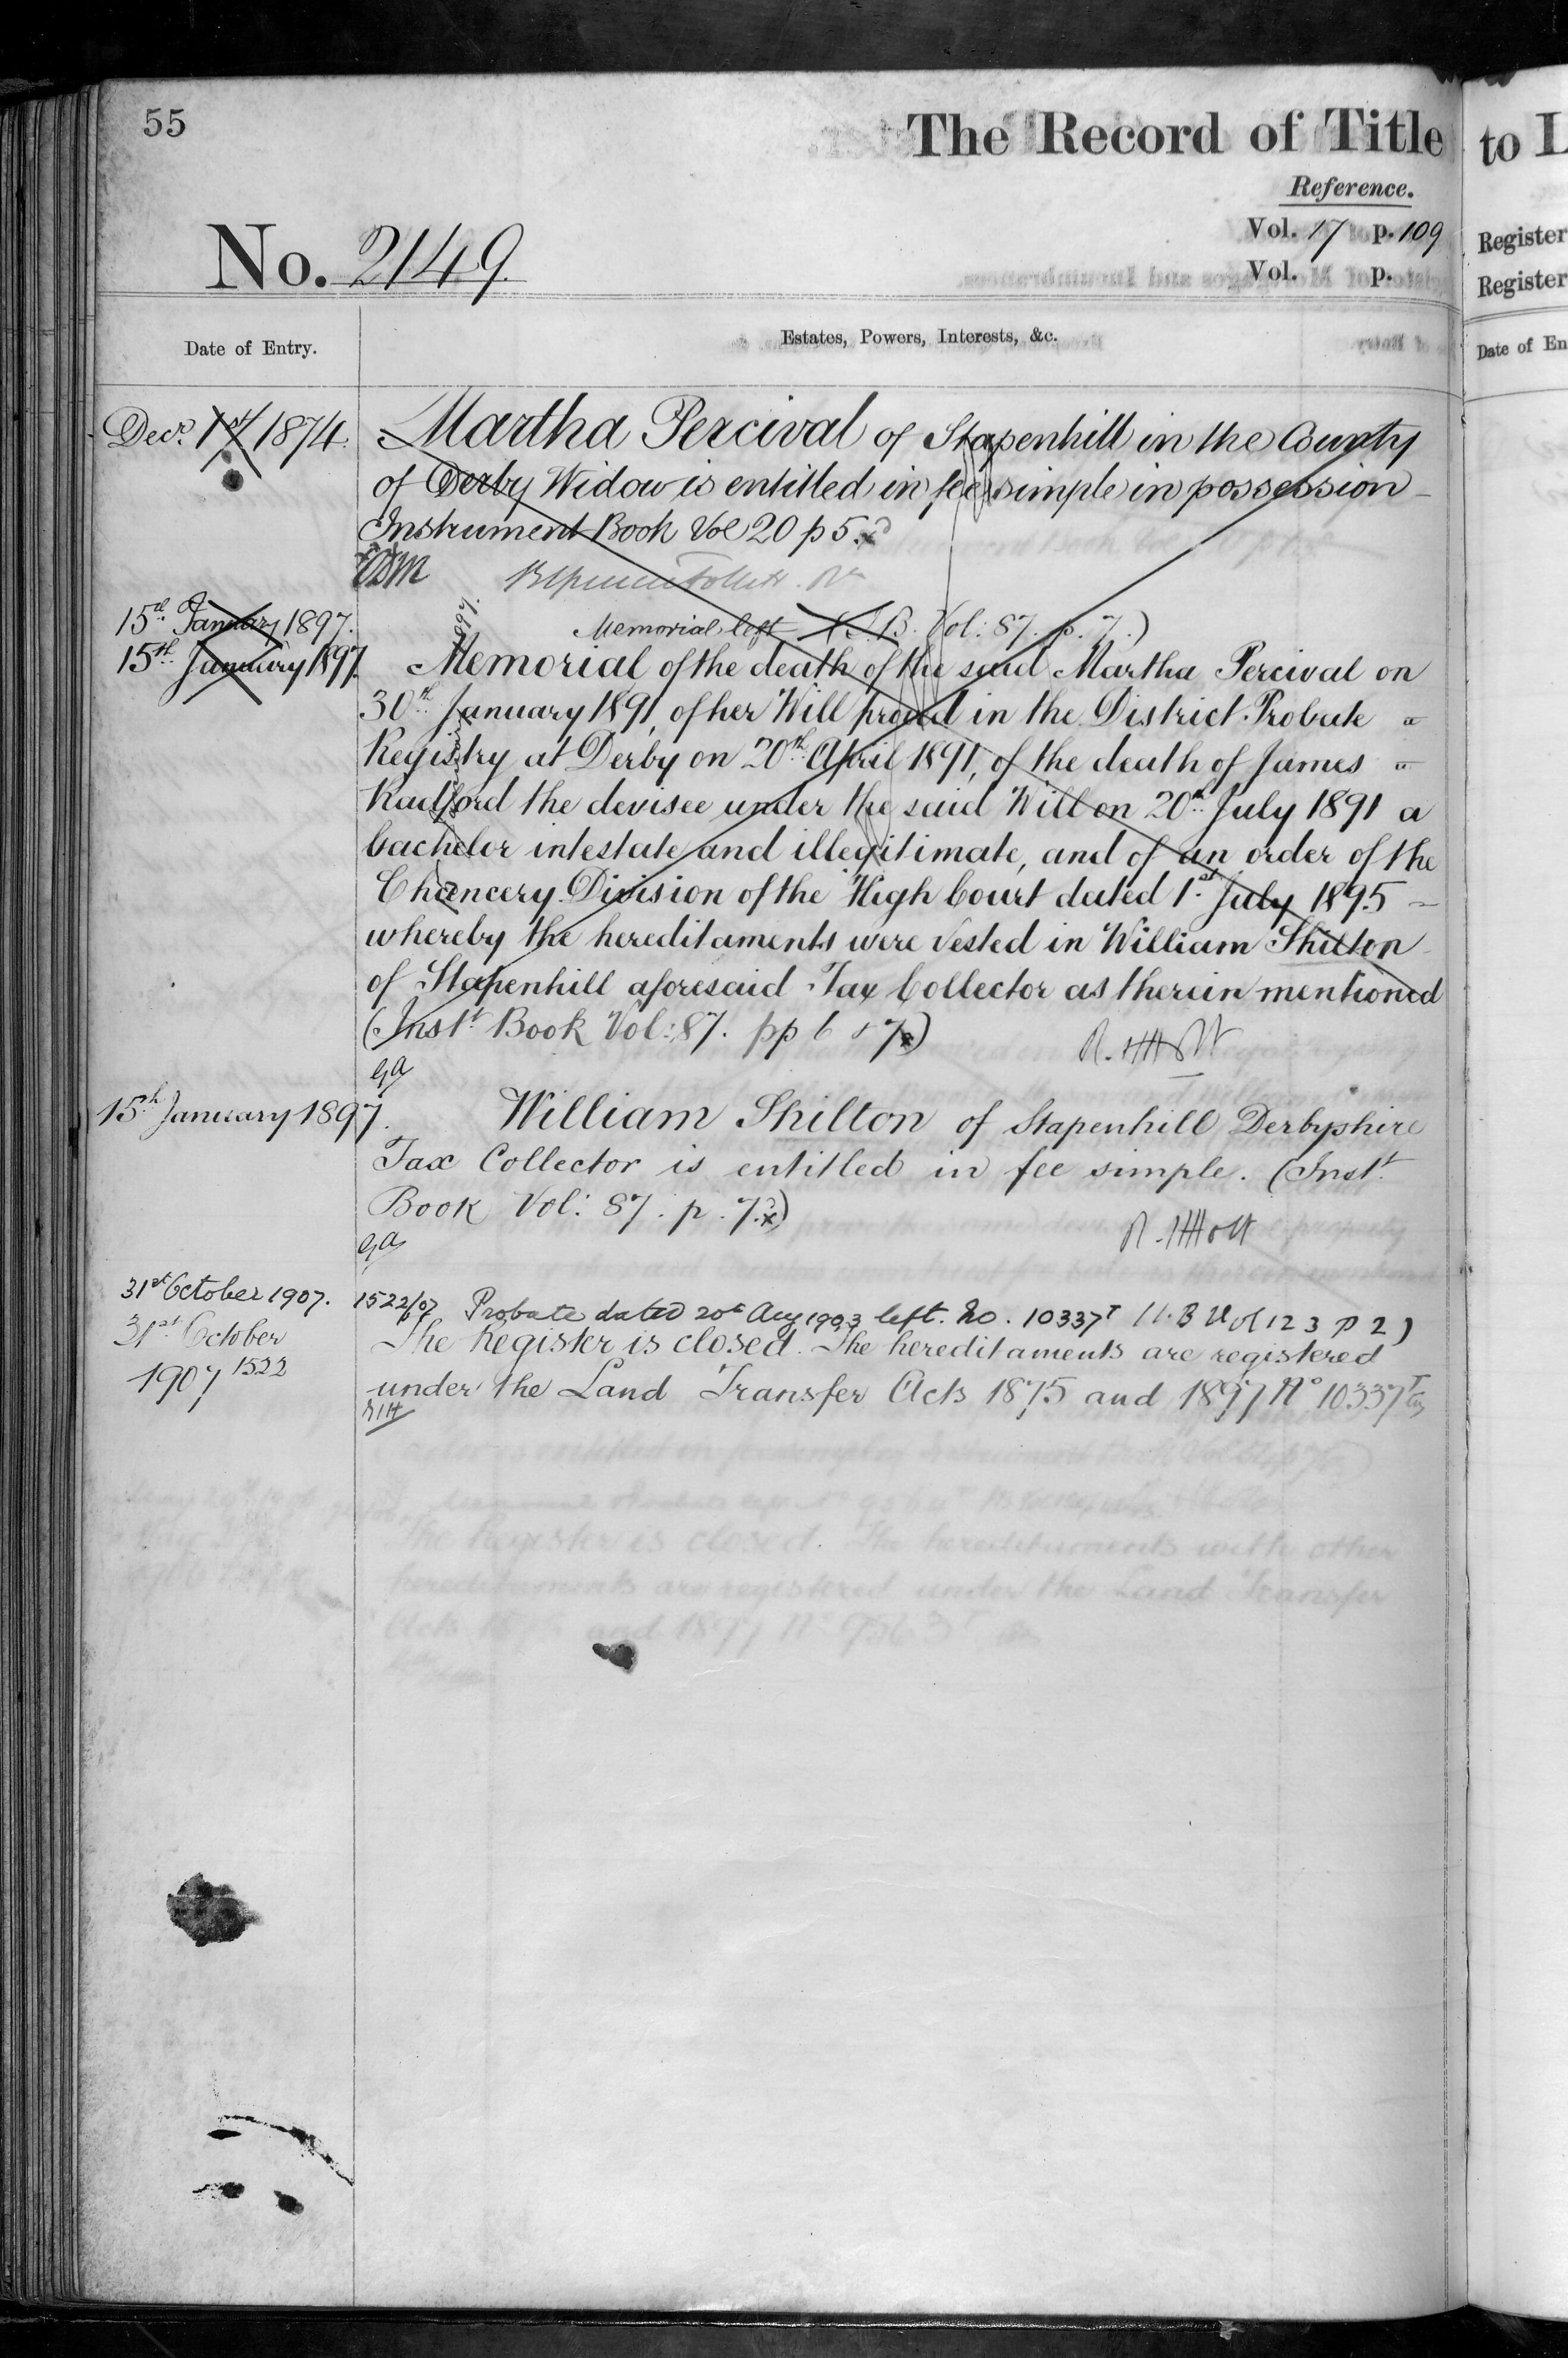 55
The Record of Title
to L
Reference.
Vol. 17 p. 109
Register
No. 2149.
Vol. p.
Register
Date of Entry.
Estates, Powers, Interests, &c.
Date of En
Decr. 1st 1874.
Martha Percival of Stapenhill in the County
of Derby Widow is entitled in fee simple in possession
Instrument Book Vol 20 p 5.
15th January 1897.
Memorial left (I.B. Vol: 87. p. 7.)
15th January 1897.
Memorial of the death of the said Martha Percival on
30th January 1891, of her Will proved in the District Probate
Registry at Derby on 20th April 1891, of the death of James
Radford the devisee under the said Will on 20th July 1891 a
bachelor intestate and illegitimate, and of an order of the
Chancery Division of the High Court dated 1st July 1895
whereby the hereditaments were vested in William Shilton
of Stapenhill aforesaid Tax Collector as therein mentioned
(Inst. Book Vol: 87. pp 6 & 7)
R. H Holt
GA
15th January 1897.
William Shilton of Stapenhill Derbyshire
Tax Collector is entitled in fee simple. (Inst.
Book Vol: 87. p. 7.)
R. H Holt
GA
31st October 1907.
1522/07 Probate dated 20th Aug 1903 left. No. 10337T (I.B Vol 123 p 2)
31st October
1907 1522
The Register is closed. The hereditaments are registered
under the Land Transfer Acts 1875 and 1897 No 10337T